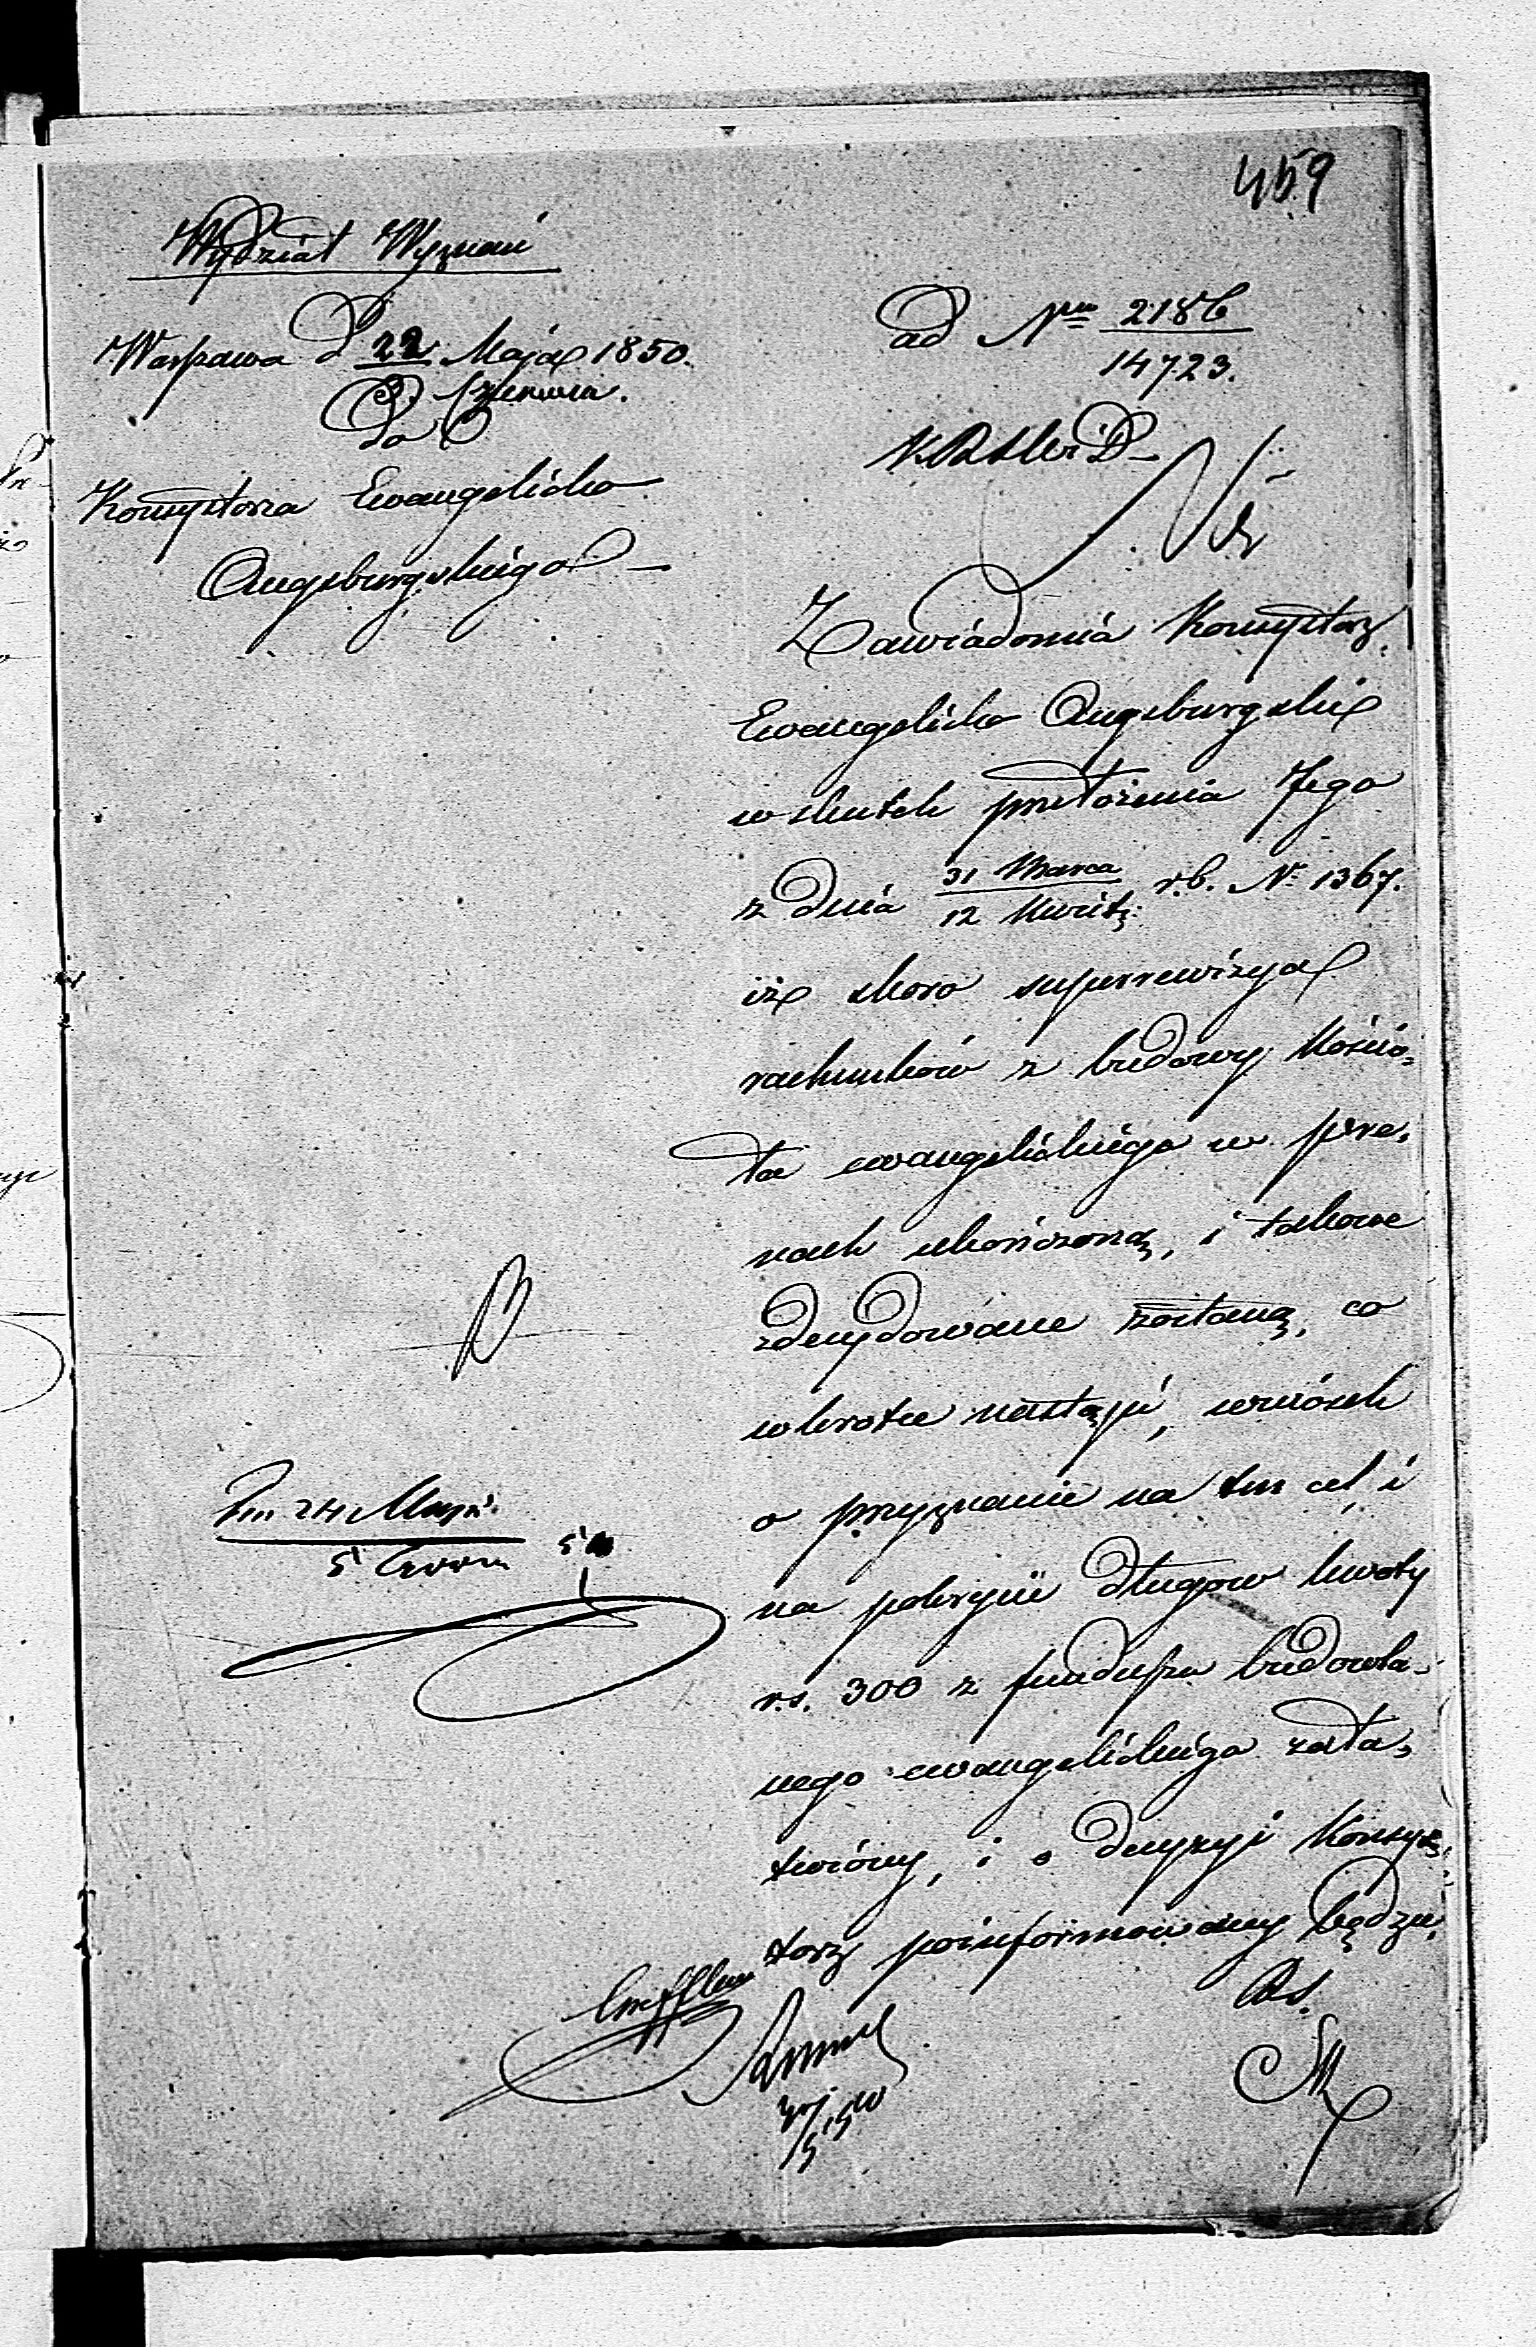 459
Wydział Wyznań
Warszawa d 22 Maja 1850.
3 Czerwca.
Do
Konsystorza Ewangelicko
Augsburgskiego
ad Nru 2186
14723.
Zawiadomia Konsystorz
Ewangelicko Augsburgski
w skutek przełożenia Jego
z dnia 31 Marca r.b. Nr 1367.
12 Kwiet:
iż skoro superrewizya
rachunków z budowy Kościo=
ła ewangelickiego w
ukończoną, i takowe
zdecydowane zostaną, co
wkrótce nastąpi, wniosek
o przyznanie na ten cel, i
na pokrycie długow kwoty
r.s. 300 z funduszu budowla=
nego ewangelickiego zała=
twiony, i o decyzyi Konsys=
torz poinformowany będzie.
24 Maja
5 Czerw